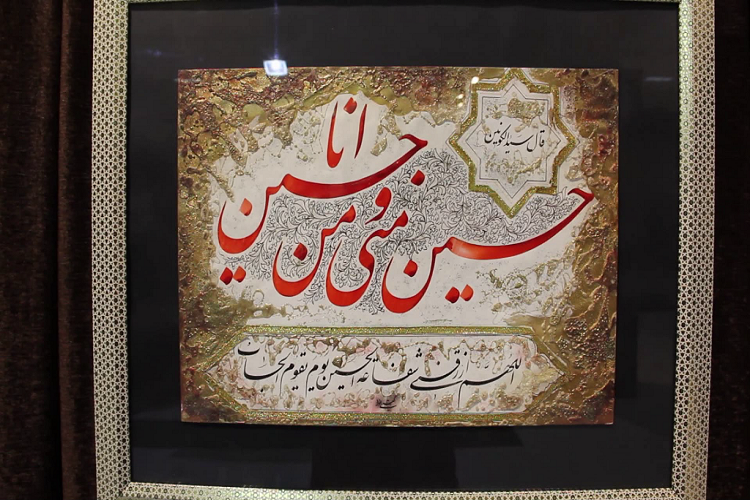 قال سید الکونین
حسین منی و انا من حسین
اللهم ارزقنی شفاعه الحسین یوم یقوم الحساب